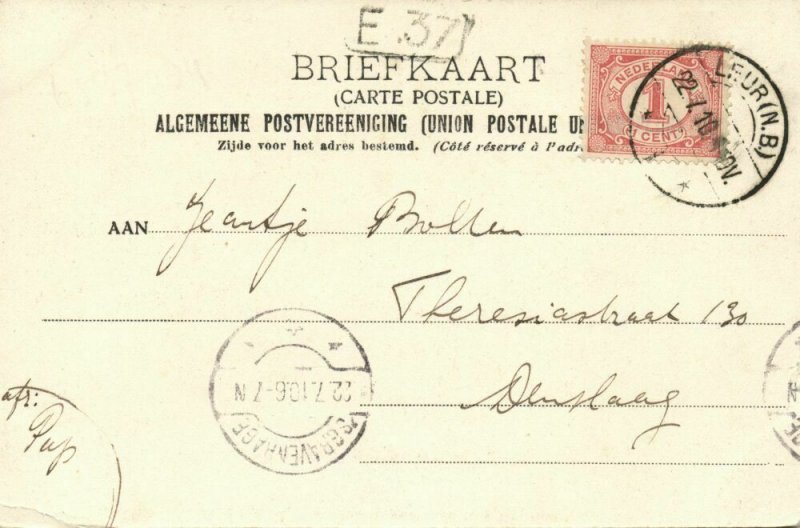 E. 37
BRIEFKAART
(CARTE POSTALE)
ALGEMEENE POSTVEREENIGING (UNION POSTALE UN
Zijde voor het adres bestemd. (Côté réservé à l'adre
NEDERLAND
1
CENT
LEUR (N.B.)
22.7.10
NV.
AAN Jeantje Bolten
Theresiastraat 130
Den Haag
'S GRAVENHAGE
22.7.10 6-7 N
afz:
Pap